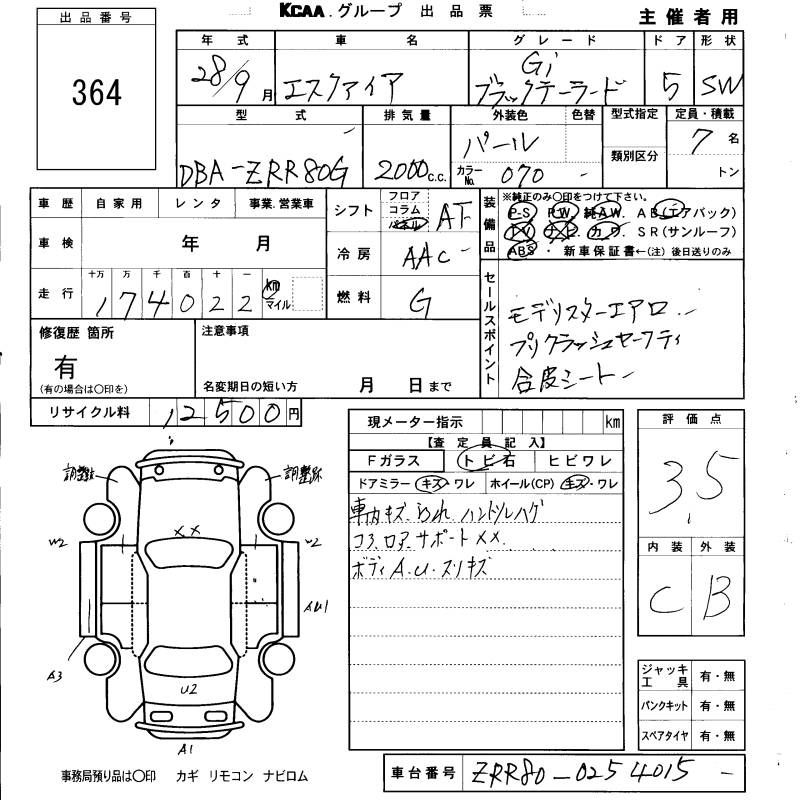 出品番号
KCAA.グループ 出品票
主催者用
364
年式 車名 グレード ドア 形状
28/9月 エスクァイア Gi ブラックテーラード 5 SW
型式 排気量 外装色 色替 型式指定 定員・積載
DBA-ZRR80G 2000c.c. パール 7名
カラーNo. 070 類別区分 トン
車歴 自家用 レンタ 事業.営業車
シフト フロア コラム パネル AT
装備品 ※純正のみ〇印をつけて下さい。
P-S P.W. 純A.W. AB(エアバック)
TV ナビ カワ SR(サンルーフ)
ABS・新車保証書←(注)後日送りのみ
車検 年 月
冷房 AAC
走行 十万 万 千 百 十 一 km マイル
174022
燃料 G
セールスポイント
モデリスタエアロ
プリクラッシュセーフティ
合皮シート
修復歴 箇所
有
(有の場合は〇印を)
注意事項
名変期日の短い方 月 日まで
リサイクル料 12500円
現メーター指示 km
【査定員記入】
Fガラス トビ石 ヒビワレ
ドアミラー キズ・ワレ ホイール(CP) キズ・ワレ
車内キズ ハンドルハゲ
コアロアサポートXX
ボディA.U.スリキズ
評価点
3.5
内装 外装
C B
調整跡 調整跡
XX
W2 U2
AU1
A3
U2
A1
ジャッキ工具 有・無
パンクキット 有・無
スペアタイヤ 有・無
事務局預り品は〇印 カギ リモコン ナビロム
車台番号 ZRR80-0254015